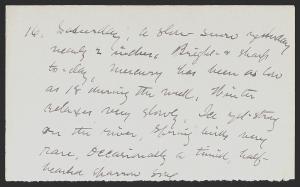 16. Saturday, A slow snow yesterday
nearly 2 inches. Bright & sharp
to-day, mercury has been as low
as 18 during the week, Winter
relaxes very slowly, Ice yet strong
on the river, Spring birds very
rare, occasionally a timid, half-
hearted sparrow song